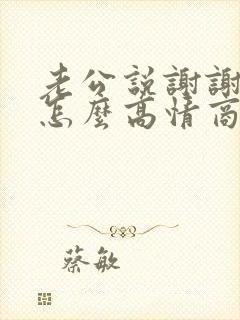 老公説謝謝
怎麼高情商
蔡敏